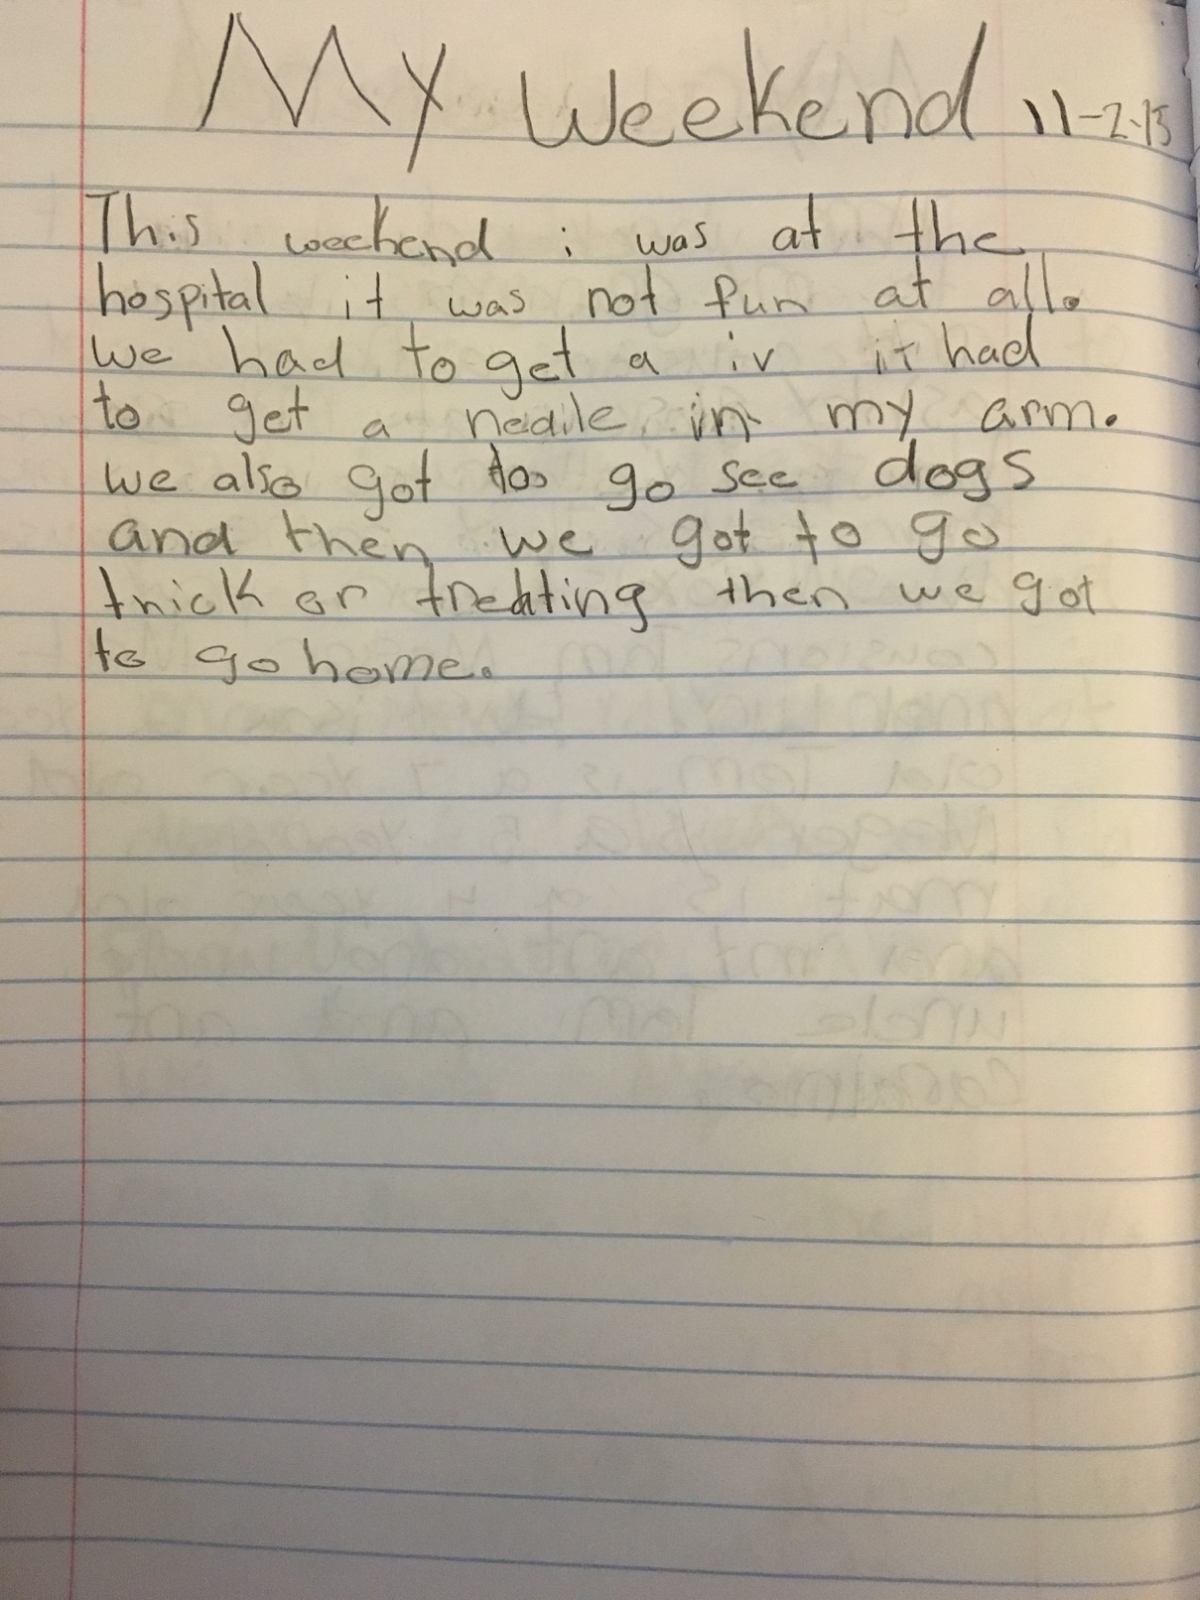 My Weekend 11-2-15
This weekend i was at the
hospital it was not fun at all.
we had to get a iv it had
to get a nedile in my arm.
we also got to go see dogs
and then we got to go
trick or treating then we got
to go home.